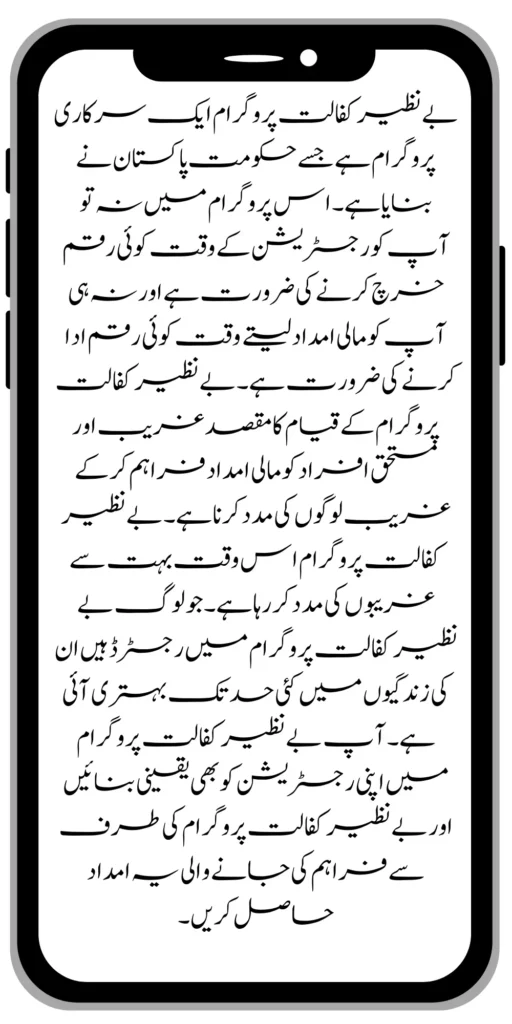 بے نظیر کفالت پروگرام ایک سرکاری
پروگرام ہے جسے حکومت پاکستان نے
بنایا ہے۔ اس پروگرام میں نہ تو
آپ کو رجسٹریشن کے وقت کوئی رقم
خرچ کرنے کی ضرورت ہے اور نہ ہی
آپ کو مالی امداد لیتے وقت کوئی رقم ادا
کرنے کی ضرورت ہے۔ بے نظیر کفالت
پروگرام کے قیام کا مقصد غریب اور
مستحق افراد کو مالی امداد فراہم کر کے
غریب لوگوں کی مدد کرنا ہے۔ بے نظیر
کفالت پروگرام اس وقت بہت سے
غریبوں کی مدد کر رہا ہے۔ جو لوگ بے
نظیر کفالت پروگرام میں رجسٹرڈ ہیں ان
کی زندگیوں میں کئی حد تک بہتری آئی
ہے۔ آپ بے نظیر کفالت پروگرام
میں اپنی رجسٹریشن کو بھی یقینی بنائیں
اور بے نظیر کفالت پروگرام کی طرف
سے فراہم کی جانے والی یہ امداد
حاصل کریں۔